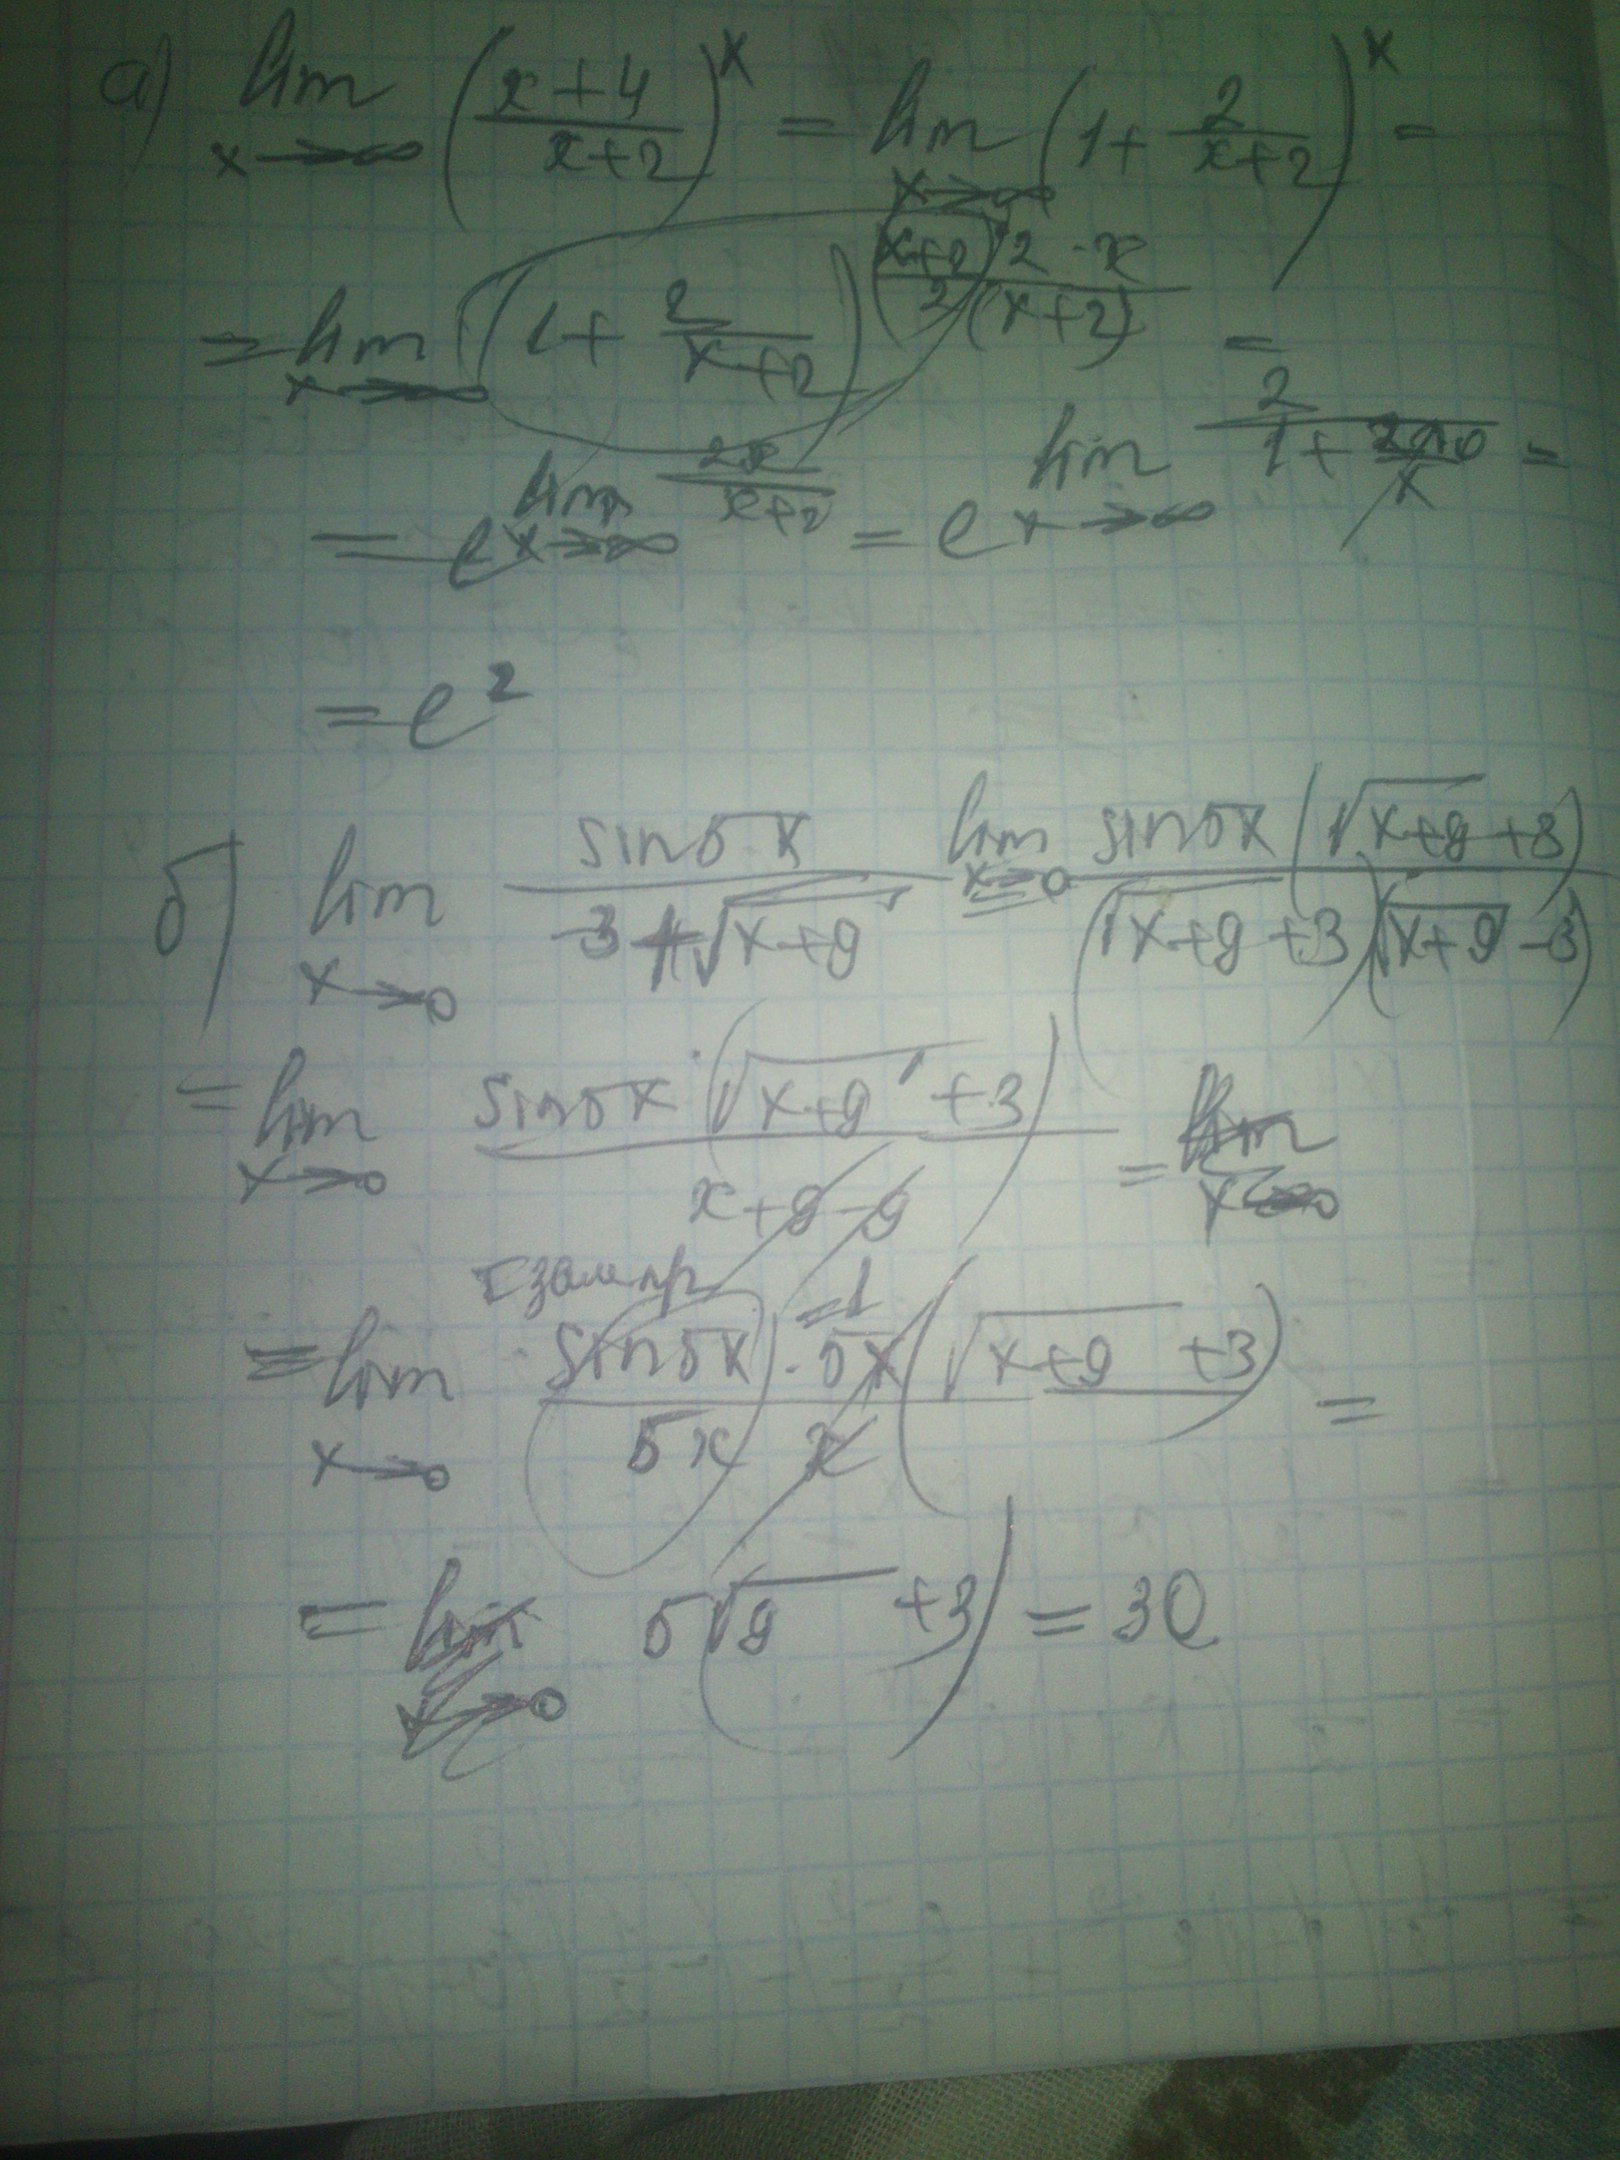 а) lim x→∞ ((x+4)/(x+2))^x = lim x→∞ (1+ 2/(x+2))^x =
= lim x→∞ (1+ 2/(x+2))^((x+2)/2 · 2·x/(x+2)) =
= e^(lim x→∞ 2x/(x+2)) = e^(lim x→∞ 2/(1+ 2/x)) =
= e^2
б) lim x→0 sin5x/(-3+√(x+9)) = lim x→0 sin5x(√(x+9)+3)/((√(x+9)+3)(√(x+9)-3))
= lim x→0 sin5x·(√(x+9)+3)/(x+9-9) = lim x→0
=1
= lim x→0 sin5x·5x(√(x+9)+3)/(5x x) =
= lim x→0 5(√9+3) = 30